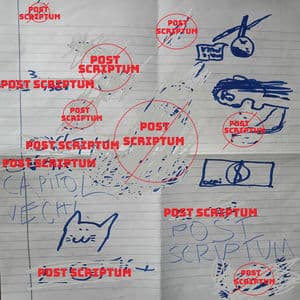 POST
SCRIPTUM
POST
SCRIPTUM
POST
SCRIPTUM
3
POST SCRIPTUM
POST
SCRIPTUM
POST
SCRIPTUM
POST
SCRIPTUM
POST SCRIPTUM
POST SCRIPTUM
CAPITOL
VECHI
POST SCRIPTUM
POST
SCRIPTUM
POST SCRIPTUM
POST
SCRIPTUM